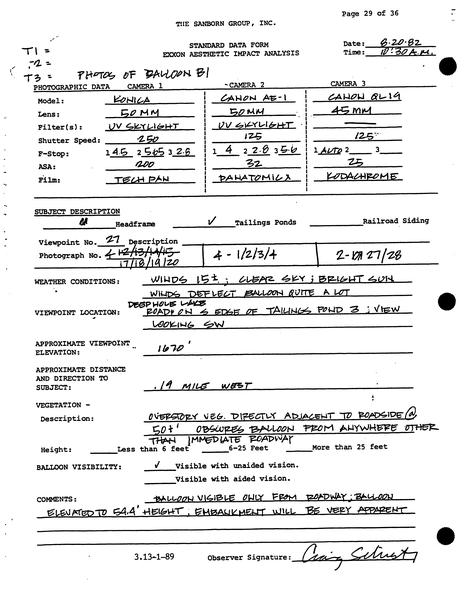 Page 29 of 36
THE SANBORN GROUP, INC.
STANDARD DATA FORM
EXXON AESTHETIC IMPACT ANALYSIS
Date: 8-20-82
Time: 10:30 A.M.
T1 =
T2 =
T3 = PHOTOS OF BALLOON B1
PHOTOGRAPHIC DATA CAMERA 1 CAMERA 2 CAMERA 3
Model: KONICA CANON AE-1 CANON QL19
Lens: 50 MM 50 MM 45 MM
Filter(s): UV SKYLIGHT UV SKYLIGHT
Shutter Speed: 250 125 125
F-Stop: 1 4.5 2 5.6 3 2.8 1 4 2 2.8 3 5.6 1 AUTO 2 3
ASA: 200 32 25
Film: TECH PAN PANATOMIC X KODACHROME
SUBJECT DESCRIPTION
Headframe ✓ Tailings Ponds Railroad Siding
Viewpoint No. 27 Description
Photograph No. 4-12/13/14/15 4 - 1/2/3/4 2- 27/28
17/18/19/20
WEATHER CONDITIONS: WINDS 15±; CLEAR SKY; BRIGHT SUN
WINDS DEFLECT BALLOON QUITE A LOT
DEEP HOLE LAKE
VIEWPOINT LOCATION: ROAD ON S EDGE OF TAILINGS POND 3; VIEW
LOOKING SW
APPROXIMATE VIEWPOINT
ELEVATION: 1670'
APPROXIMATE DISTANCE
AND DIRECTION TO
SUBJECT: .19 MILE WEST
VEGETATION -
Description: OVERSTORY VEG. DIRECTLY ADJACENT TO ROADSIDE @
50±' OBSCURES BALLOON FROM ANYWHERE OTHER
THAN IMMEDIATE ROADWAY
Height: Less than 6 feet 6-25 Feet More than 25 feet
BALLOON VISIBILITY: ✓ Visible with unaided vision.
Visible with aided vision.
COMMENTS: BALLOON VISIBLE ONLY FROM ROADWAY; BALLOON
ELEVATED TO 54.4' HEIGHT, EMBANKMENT WILL BE VERY APPARENT
3.13-1-89 Observer Signature: Craig